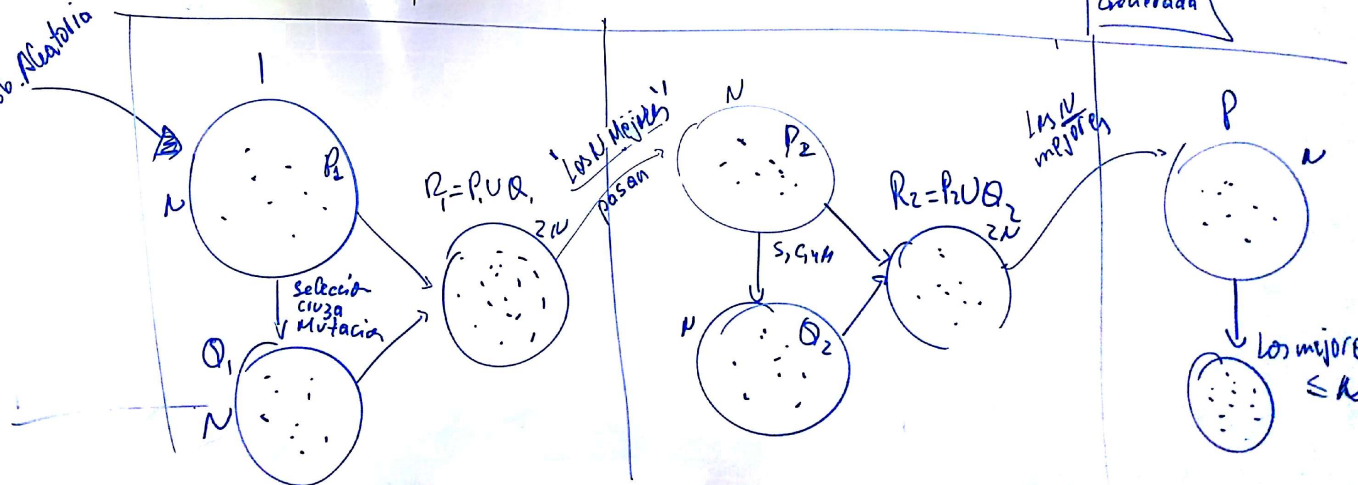 Aleatoria
1
N
P1
Selección
cruza
Mutación
Q1
N
R1=P1UQ1
2N
"Los N Mejores"
pasan
N
P2
S, C y M
N
Q2
R2=P2UQ2
2N
Los N
mejores
P
N
Los mejore
≤